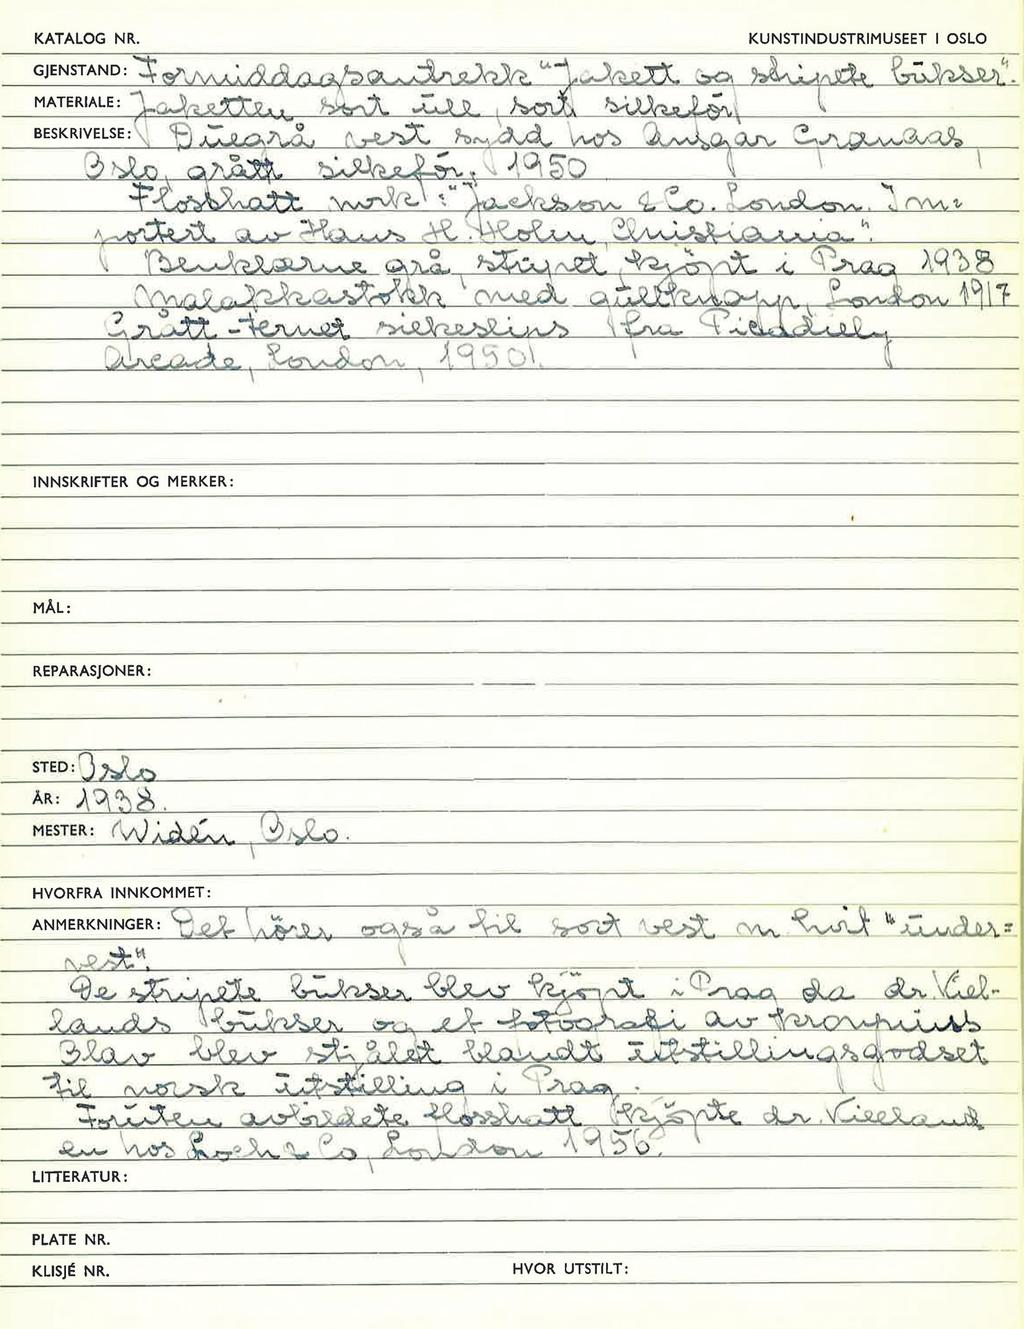 KATALOG NR. KUNSTINDUSTRIMUSEET I OSLO
GJENSTAND: Formiddagsantrekk "Jakett og stripete bukser".
MATERIALE: Jaketten sort ull, sort silkefór
BESKRIVELSE: Duegrå vest sydd hos Ansgar Grønaas,
Oslo, grått silkefór, 1950
Flosshatt mrk: "Jackson & Co. London. Im=
portert av Hans H. Holm, Christiania".
Benklærne grå, stripet, kjöpt i Prag 1938
Malakkastokk med gullknapp, London 1917
Grått-ternet silkeslips fra Picaddiely
Arcade, London, 1950.
INNSKRIFTER OG MERKER:
MÅL:
REPARASJONER:
STED: Oslo
ÅR: 1938.
MESTER: Widén, Oslo.
HVORFRA INNKOMMET:
ANMERKNINGER: Det hörer også til sort vest m. hvit "under=
vest".
De stripete bukser blev kjöpt i Prag da dr. Kiel-
lands bukser og et fotografi av kronprins
Olav blev stjålet blandt utstillingsgodset
til norsk utstilling i Prag.
Foruten avbildete flosshatt kjöpte dr. Kielland
en hos Loch & Co, London 1956.
LITTERATUR:
PLATE NR.
KLISJÉ NR. HVOR UTSTILT: